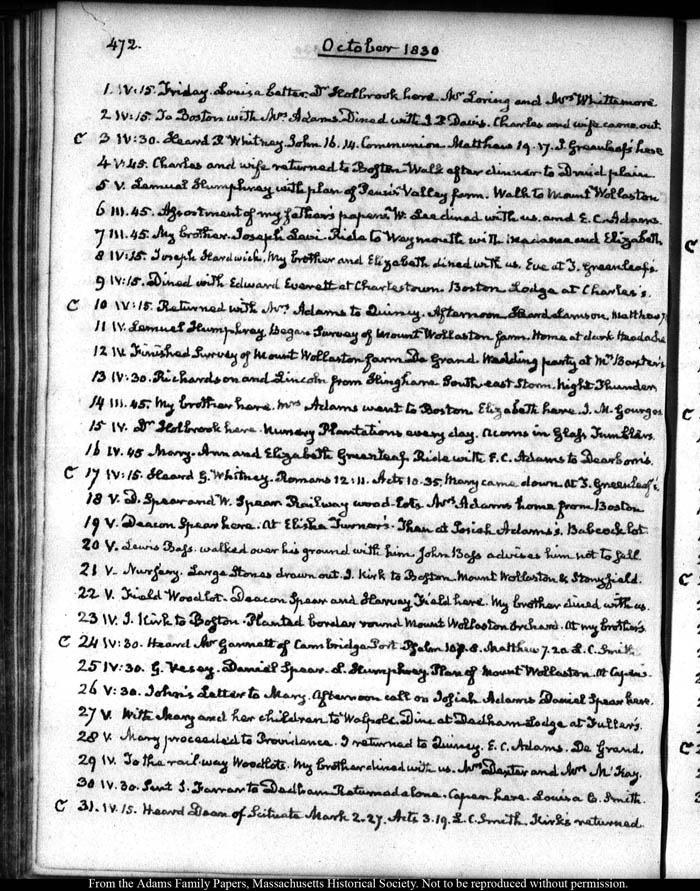 472.
October 1830
1 IV:15. Friday. Louisa better. Dr Holbrook here. Mr Loring and Mrs Whittemore
2 IV:15. To Boston with Mrs Adams. Dined with I. P. Davis. Charles and wife came out.
C 3 IV:30. Heard P. Whitney. John 16. 14. Communion. Matthew 19. 17. J. Greenleafs here
4 V:45. Charles and wife returned to Boston. Walk after dinner to plain
5 V. Lemuel Humphrey with plan of Valley farm. Walk to Mount Wollaston
6 III.45. Assortment of my father's papers. W. Lee dined with us. and E. C. Adams.
7 III.45. My brother. Joseph Ride to Weymouth with and Elizabeth
8 IV:15. Joseph Hardwick. My brother and Elizabeth dined with us. Eve at J. Greenleaf's.
9 IV:15. Dined with Edward Everett at Charlestown. Boston Lodge at Charles's.
C 10 IV:15. Returned with Mrs Adams to Quincy. Afternoon. Heard Lamson. Matthew
11 IV. Lemuel Humphrey. Began Survey of Mount Wollaston farm. Home at dusk Headache
12 IV. Finished Survey of Mount Wollaston farm De Grand. Wedding party at Mr Baxter's
13 IV:30. Richardson and Lincoln from Hingham South east Storm. Night Thunder
14 III.45. My brother here. Mrs Adams went to Boston Elizabeth here. J. M. Gourgas
15 IV. Dr Holbrook here. Nursery Plantations every day. Acorns in Glass Tumblers.
16 IV.45 Mary. Ann and Elizabeth Greenleaf. Ride with E. C. Adams to Dearborn's.
C 17 IV:15. Heard G. Whitney. Romans 12:11. Acts 10. 35. Mary came down. At J. Greenleaf's.
18 V. D. Spear and W. Spear Railway wood-lots. Mrs Adams home from Boston
19 V. Deacon Spear here. At Elisha Turner's. Then at Josiah Adams's. Babcock lot
20 V. Lewis Bass. walked over his ground with him. John Bass advises him not to sell
21 V. Nursery. Large Stones drawn out. J. Kirk to Boston. Mount Wollaston & Stonyfield.
22 V. Field Woodlot. Deacon Spear and Harvey Field here. My brother dined with us.
23 IV. J. Kirk to Boston. Planted border round Mount Wollaston Orchard. At my brother's
C 24 IV:30. Heard Mr Gannett of Cambridge Port Psalm Matthew 7. 20. L. C. Smith
25 IV:30. G. Vesey. Daniel Spear. L. Humphrey Plan of Mount Wollaston. At Capen's.
26 V:30. John's Letter to Mary. Afternoon call on Josiah Adams Daniel Spear here.
27 V. With Mary and her children to Walpole. Dine at Dedham Lodge at Fuller's.
28 V. Mary proceeded to Providence. I returned to Quincy. E. C. Adams. De Grand.
29 IV. To the rail-way Woodlots. My brother dined with us. Mrs Dexter and Mrs McKay.
30 IV.30. Sent J. Farrar to Dedham Returned alone. Capen here. Louisa C. Smith.
C 31. IV.15. Heard Dean of Scituate Mark 2. 27. Acts 3. 19. L. C. Smith. Kirk's returned.
From the Adams Family Papers, Massachusetts Historical Society. Not to be reproduced without permission.